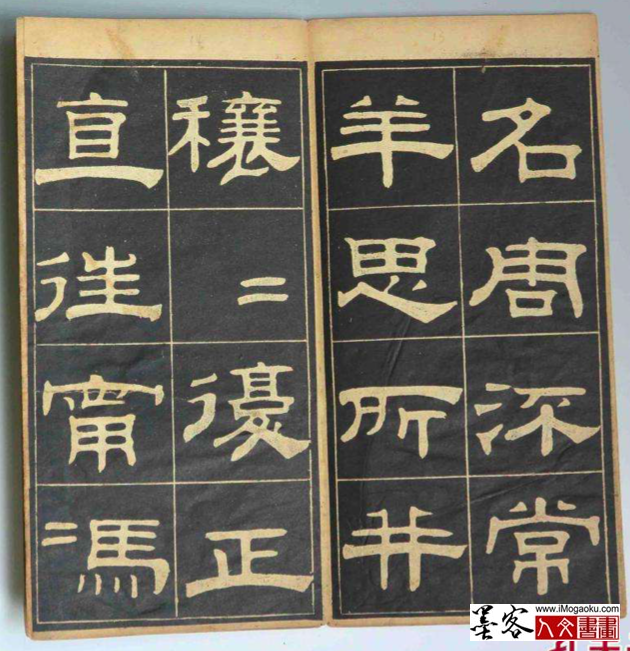 名周常
羊思所并
穰二復正
直往甯馮
墨客
www.iMogaoku.com
人文書畫